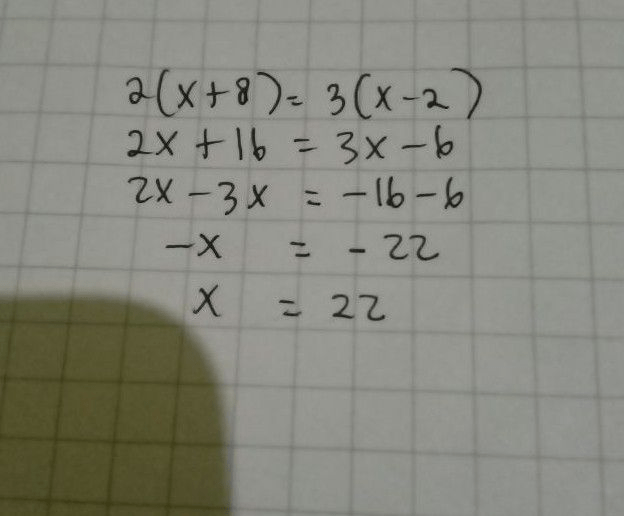 2(x+8)= 3(x-2)
2x + 16 = 3x - 6
2x - 3x = -16 - 6
-x = - 22
x = 22